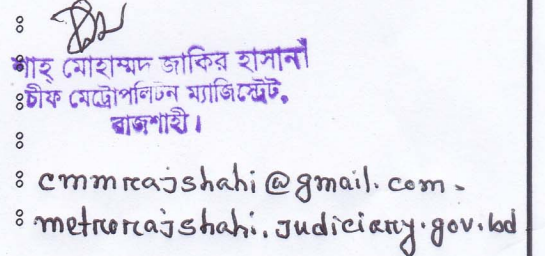 ঃ
ঃ শাহ্ মোহাম্মদ জাকির হাসান
ঃ চীফ মেট্রোপলিটন ম্যাজিস্ট্রেট,
রাজশাহী।
ঃ
ঃ cmmrajshahi@gmail.com.
ঃ metrorajshahi.judiciary.gov.bd